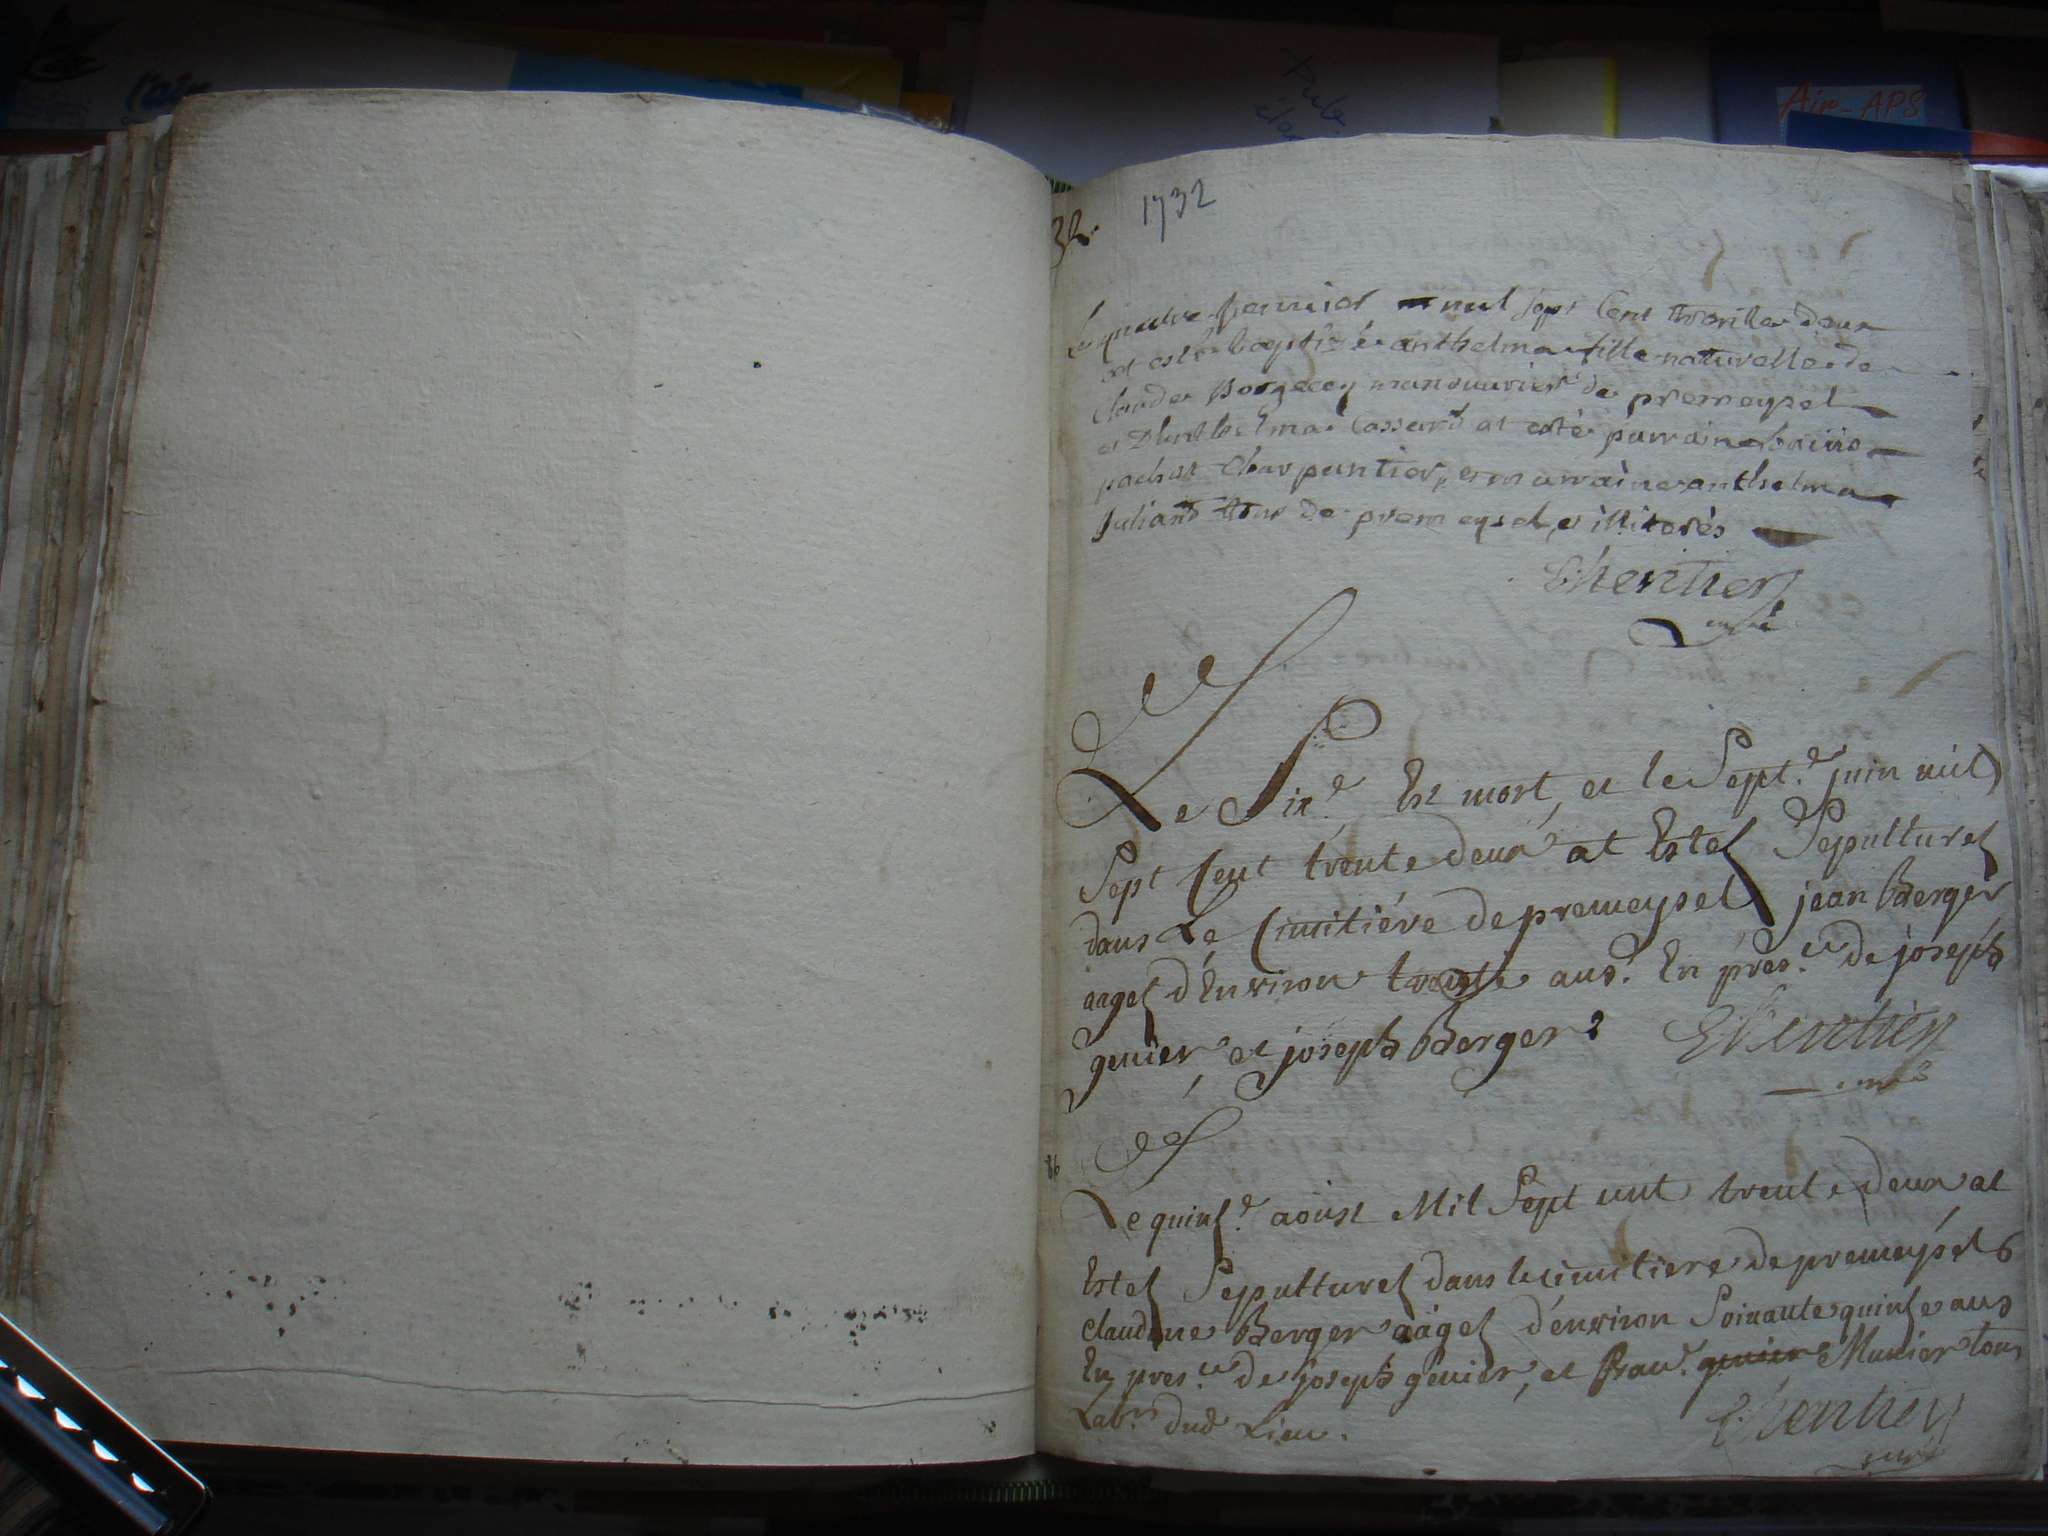 l'air
Air-APS
32
1732
Le quatre Jenvier mil sept Cent trente deux
at esté baptizée anthelma fille naturelle de
Claude manouvrier de premeysel
et D'anthelma Cassard at esté parrain
pachot Charpantier, et marraine anthelma
Juliand tous de premeysel, et illiterés
L'heritier
curé
Le Six.e Est mort, et le Sept.e juin mil
Sept Cent trente deux at Estez Sepulturez
dans Le Cimitiére de premeysel jean Berger
aagez d'Environ trente ans. En pres.ce de joseph
genier, et joseph Berger
L'heritier
curé
86
Le quinz.e aoust Mil Sept cent trente deux at
Estez Sepulturez dans le cimitiere de premeysel
claudine Berger aàgez d'environ Soixante quinze ans
En pres.ce de joseph genier, et genier Munier tous
Lab.rs dud Lieu.
L'heritier
curé